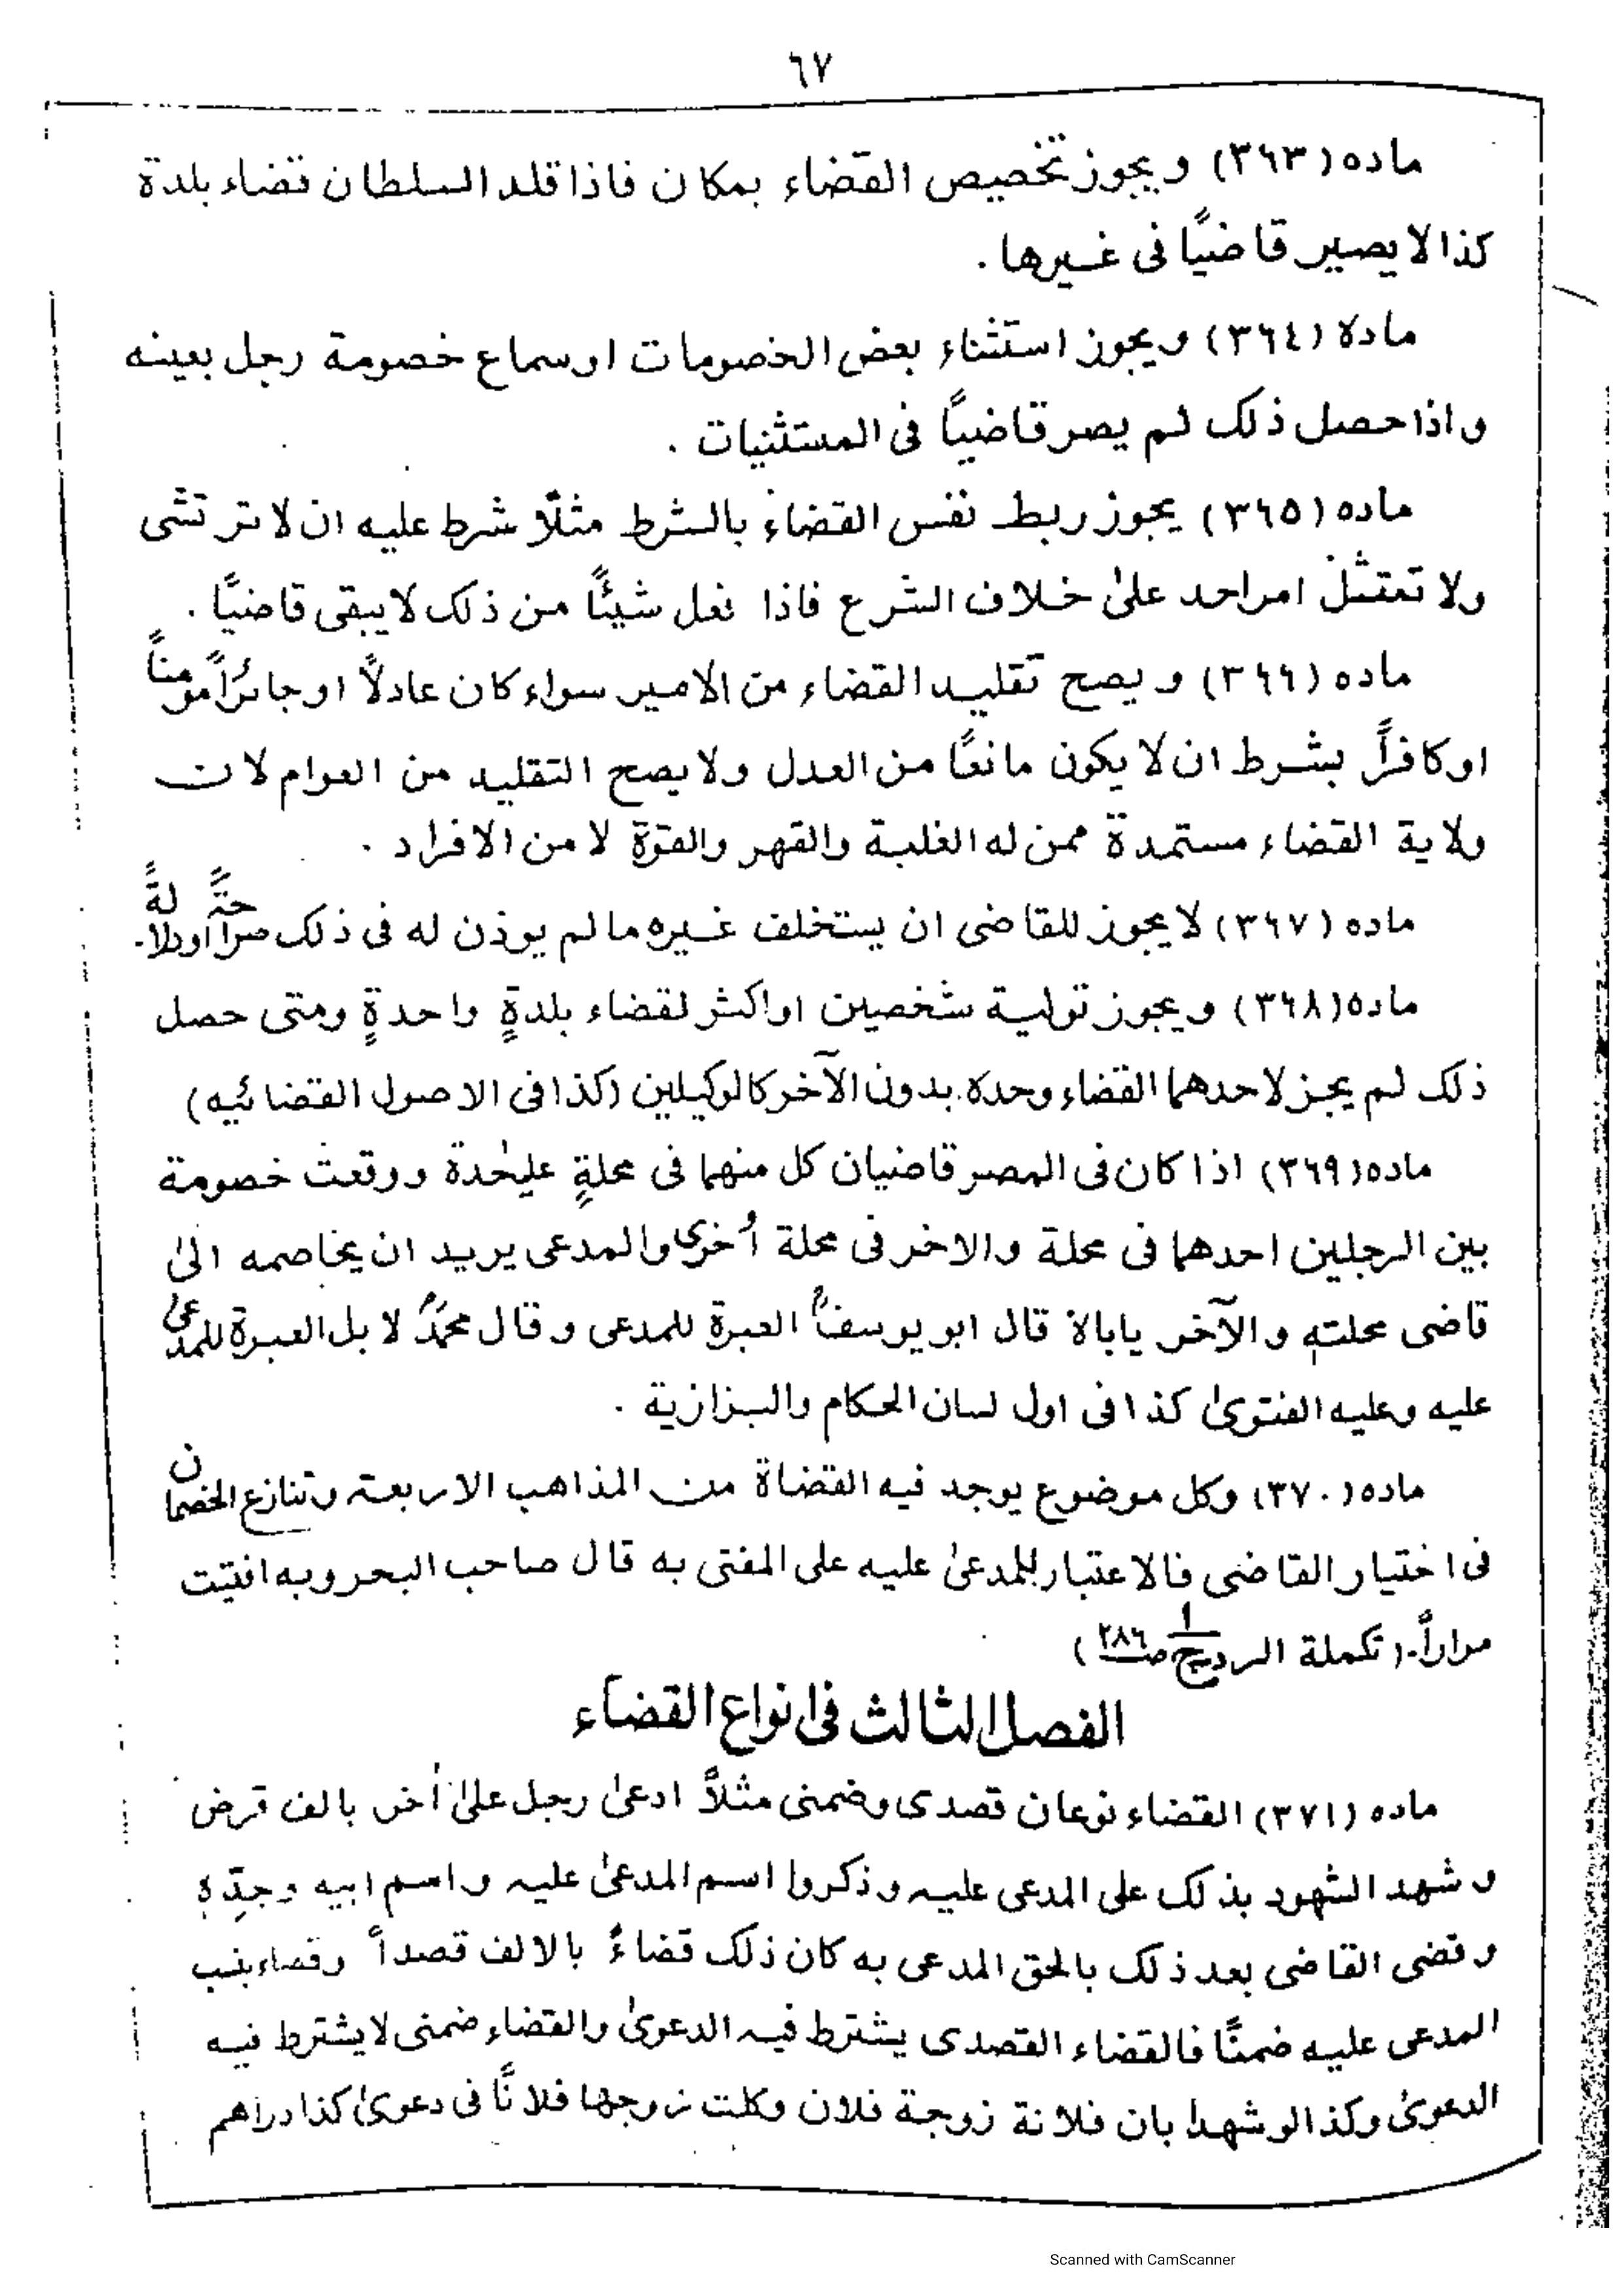 ٦٧
ماده (٣٦٣) ويجوز تخصيص القضاء بمكان فاذا قلد السلطان قضاء بلدة
كذا لا يصير قاضيًا فى غيرها .
مادة (٣٦٤) ويجوز استثناء بعض الخصومات او سماع خصومة رجل بعينه
واذا حصل ذلك لم يصر قاضيًا فى المستثنيات .
ماده (٣٦٥) يجوز ربط نفس القضاء بالشرط مثلًا شرط عليه ان لا ترتشى
ولا تمتثل امر احد علىٰ خلاف الشرع فاذا فعل شيئًا من ذلك لا يبقى قاضيًا .
ماده (٣٦٦) ويصح تقليد القضاء من الامير سواء كان عادلًا او جائرًا مومنًا
او كافرًا بشرط ان لا يكون مانعًا من العدل ولا يصح التقليد من العوام لان
ولاية القضاء مستمدة ممن له الغلبة والقهر والقوة لا من الافراد .
ماده (٣٦٧) لا يجوز للقاضى ان يستخلف غيره ما لم يوذن له فى ذلك صراحةً او دلالةً-
ماده (٣٦٨) ويجوز تولية شخصين او اكثر لقضاء بلدةٍ واحدةٍ ومتى حصل
ذلك لم يجز لاحدهما القضاء وحده بدون الآخر كالوكيلين (كذا فى الاصول القضائيه)
ماده (٣٦٩) اذا كان فى المصر قاضيان كل منهما فى محلةٍ عليٰحدة ووقعت خصومة
بين الرجلين احدهما فى محلة والاخر فى محلة أخرى والمدعى يريد ان يخاصمه الىٰ
قاضى محلته والآخر يأباه قال ابو يوسفؒ العبرة للمدعى وقال محمدؒ لا بل العبرة للمدعىٰ
عليه وعليه الفتوىٰ كذا فى اول لسان الحكام والبزازية .
ماده (٣٧٠) وكل موضوع يوجد فيه القضاة من المذاهب الاربعة وتنازع الخصمان
فى اختيار القاضى فالاعتبار للمدعىٰ عليه على المفتى به قال صاحب البحر وبه افتيت
مرارًا۔ (تكملة الرد ج ١ ص ٢٨٦)
الفصل الثالث فى انواع القضاء
ماده (٣٧١) القضاء نوعان قصدى وضمنى مثلًا ادعىٰ رجل علىٰ أخر بالف قرض
وشهد الشهود بذلك على المدعى عليه وذكروا اسم المدعىٰ عليه واسم ابيه وجدّه
وقضى القاضى بعد ذلك بالحق المدعى به كان ذلك قضاءً بالالف قصداً وقضاء بنسب
المدعى عليه ضمنًا فالقضاء القصدى يشترط فيه الدعوىٰ والقضاء ضمنى لا يشترط فيه
الدعوىٰ وكذا لو شهدا بان فلانة زوجة فلان وكلت زوجها فلانًا فى دعوىٰ كذا دراهم
Scanned with CamScanner